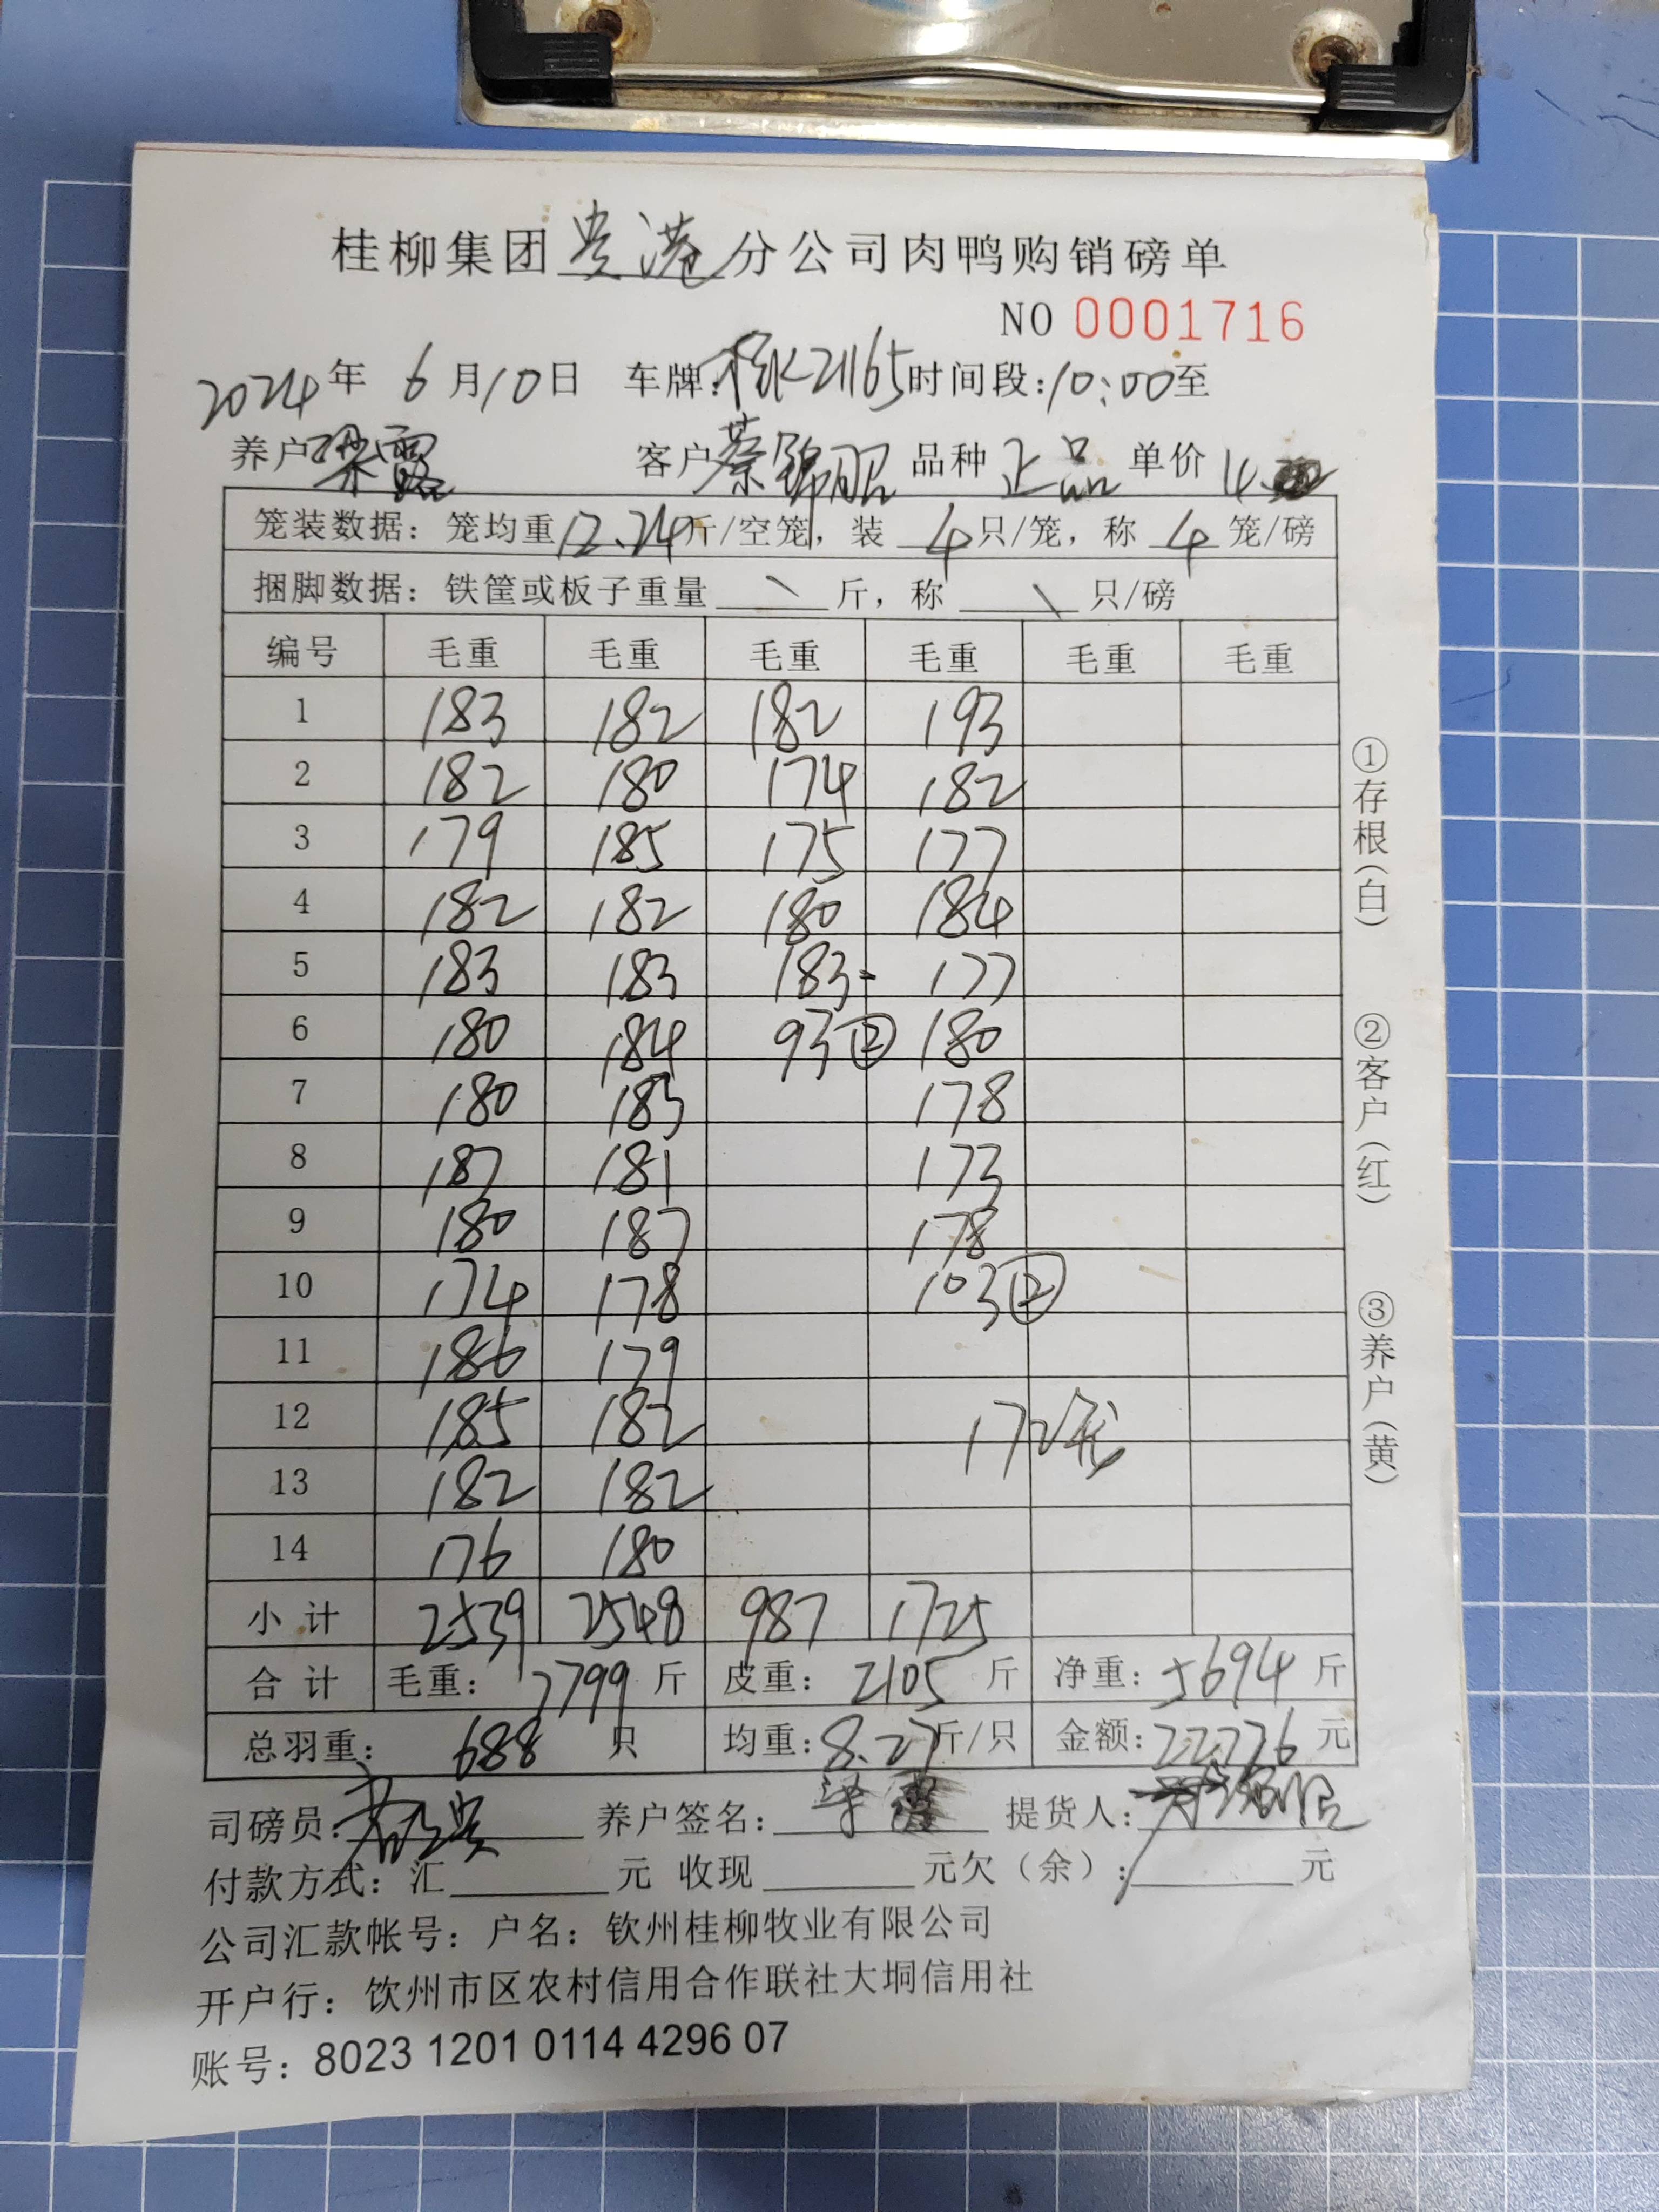 桂柳集团贵港分公司肉鸭购销磅单
NO 0001716
2024年 6月10日 车牌:桂K21165 时间段:10:00至
养户梁露 客户蔡锦昭 品种正品 单价4.
笼装数据: 笼均重12.24斤/空笼, 装 4只/笼, 称 4 笼/磅
捆脚数据: 铁筐或板子重量 \ 斤, 称 \ 只/磅
编号 毛重 毛重 毛重 毛重 毛重 毛重
1 183 182 182 193
2 182 180 174 182
3 179 185 175 177
4 182 182 180 184
5 183 183 183- 177
6 180 184 93② 180
7 180 183 178
8 187 181 173
9 180 187 178
10 174 178 103②
11 186 179
12 185 182 172笼
13 182 182
14 176 180
小计 2539 2548 987 1725
合计 毛重: 7799 斤 皮重: 2105 斤 净重: 5694 斤
总羽重: 688 只 均重: 8.27斤/只 金额: 22776 元
司磅员: 养户签名: 梁露 提货人:
付款方式: 汇 元 收现 元欠(余): 元
公司汇款帐号: 户名: 钦州桂柳牧业有限公司
开户行: 钦州市区农村信用合作联社大垌信用社
账号: 8023 1201 0114 4296 07
①存根(白)
②客户(红)
③养户(黄)